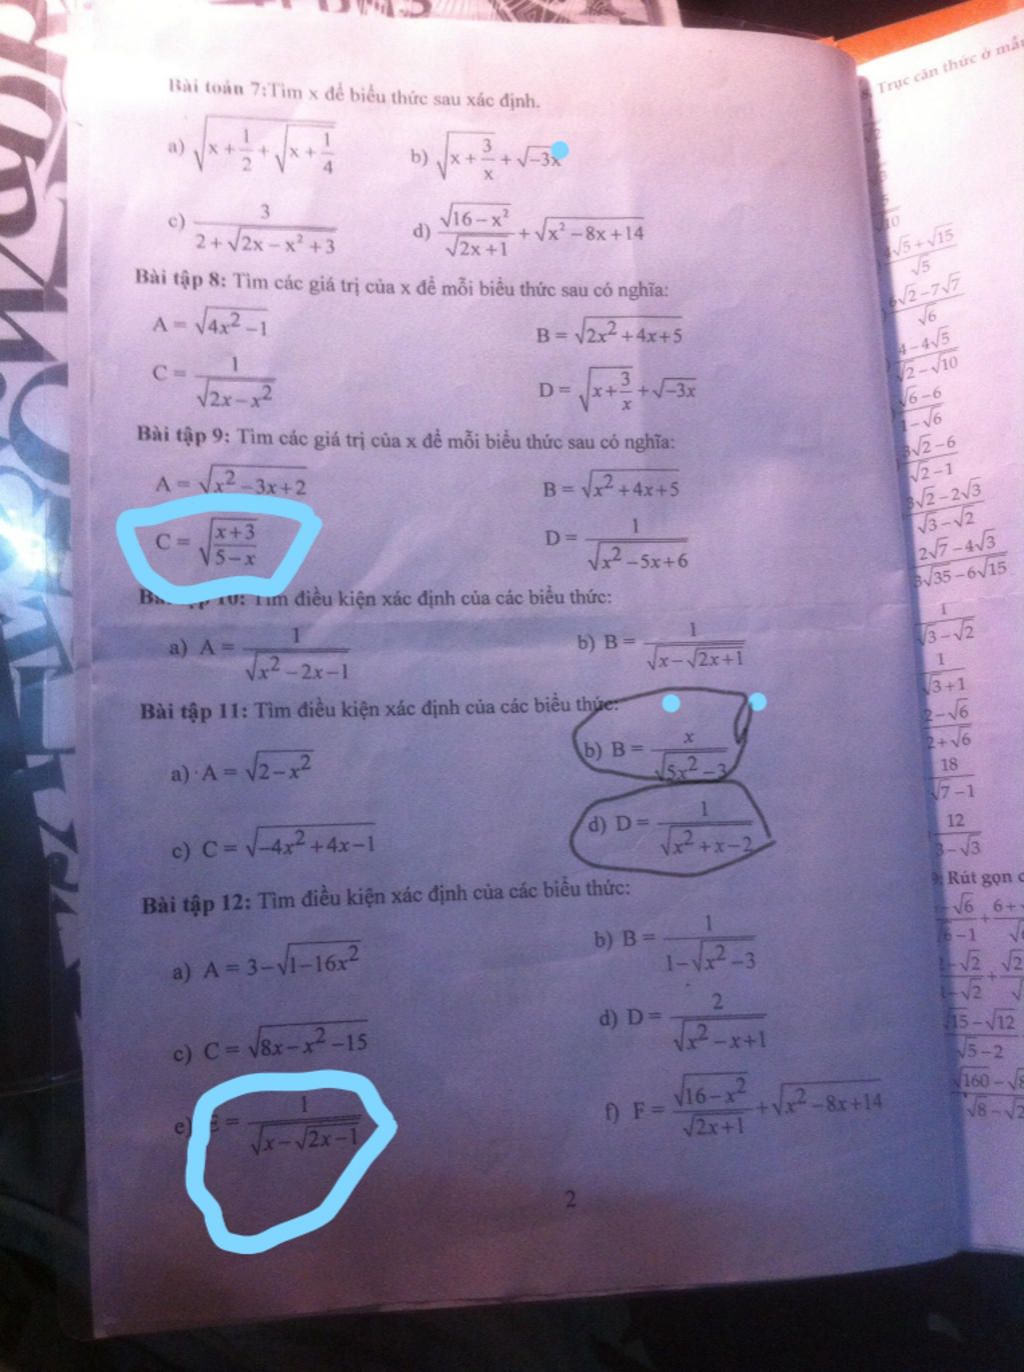 Bài toán 7:Tìm x để biểu thức sau xác định.
a) √(x + 1/2 + √(x + 1/4)) b) √(x + 3/x) + √(−3x)
c) 3/(2 + √(2x − x² + 3)) d) √(16 − x²)/√(2x + 1) + √(x² − 8x + 14)
Bài tập 8: Tìm các giá trị của x để mỗi biểu thức sau có nghĩa:
A = √(4x² − 1) B = √(2x² + 4x + 5)
C = 1/√(2x − x²) D = √(x + 3/x) + √(−3x)
Bài tập 9: Tìm các giá trị của x để mỗi biểu thức sau có nghĩa:
A = √(x² − 3x + 2) B = √(x² + 4x + 5)
C = √((x + 3)/(5 − x)) D = 1/√(x² − 5x + 6)
10: Tìm điều kiện xác định của các biểu thức:
a) A = 1/√(x² − 2x − 1) b) B = 1/√(x − √(2x + 1))
Bài tập 11: Tìm điều kiện xác định của các biểu thức:
a) A = √(2 − x²) b) B = x/√(5x² − 3)
c) C = √(−4x² + 4x − 1) d) D = 1/√(x² + x − 2)
Bài tập 12: Tìm điều kiện xác định của các biểu thức:
a) A = 3 − √(1 − 16x²) b) B = 1/(1 − √(x² − 3))
c) C = √(8x − x² − 15) d) D = 2/√(x² − x + 1)
e) E = 1/√(x − √(2x − 1)) f) F = √(16 − x²)/√(2x + 1) + √(x² − 8x + 14)
2
Trục căn thức ở
√5 + √15/√5
√2 − 7√7/√6
4 − 4√5/√2 − √10
√6 − 6/1 − √6
√2 − 6/√2 − 1
3√2 − 2√3/√3 − √2
2√7 − 4√3/3√35 − 6√15
1/√3 − √2
1/√3 + 1
2 − √6/2 + √6
18/√7 − 1
12/3 − √3
: Rút gọn
√15 − √12/√5 − 2